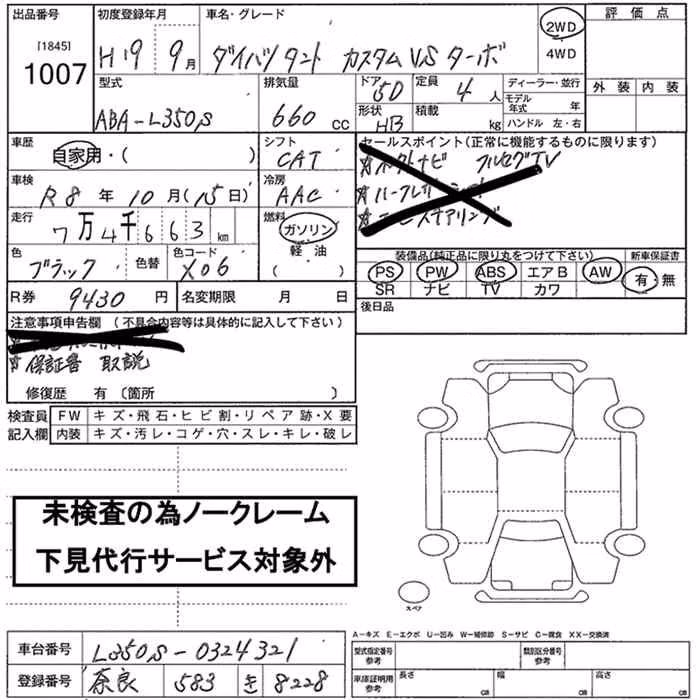 出品番号 初度登録年月 車名・グレード 評価点
[1845]
1007 H19 9月 ダイハツ タント カスタム VS ターボ 2WD
4WD
型式 排気量 ドア 5D 定員 4人 ディーラー・並行 外装 内装
モデル年式 年
ABA-L350S 660 CC 形状 HB 積載 kg ハンドル 左・右
車歴 自家用・( ) シフト CAT セールスポイント(正常に機能するものに限ります)
車検 R8年10月(15日) 冷房 AAC
走行 7万4千663km 燃料 ガソリン
軽油
( )
色 ブラック 色替 色コード X06
装備品(純正品に限り丸をつけて下さい) 新車保証書
PS PW ABS エアB AW 有・無
SR ナビ TV カワ
R券 9430円 名変期限 月 日 後日品
注意事項申告欄 (不具合内容等は具体的に記入して下さい)
保証書 取説
修復歴 有 (箇所 )
検査員 FW キズ・飛石・ヒビ割・リペア跡・X要
記入欄 内装 キズ・汚レ・コゲ・穴・スレ・キレ・破レ
未検査の為ノークレーム
下見代行サービス対象外
スペア
A-キズ E-エクボ U-凹み W-補修跡 S-サビ C-腐食 XX-交換済
車台番号 L350S-0324321 型式指定番号 参考 類別区分番号 参考
登録番号 奈良 583 き 8228 車庫証明用 参考 長さ CM 幅 CM 高さ CM